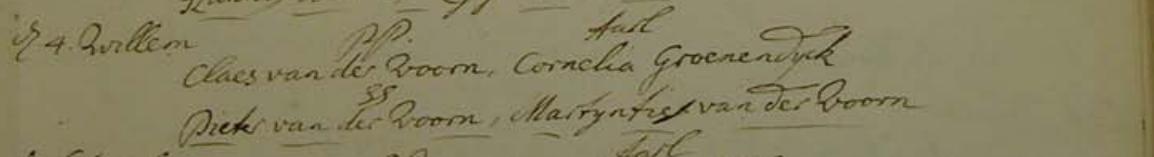 4. Willem
PP. Aarl
Claes van der Voorn, Cornelia Groenendyck
SS
Pieter van der Voorn, Martyntie van der Voorn
Aarl